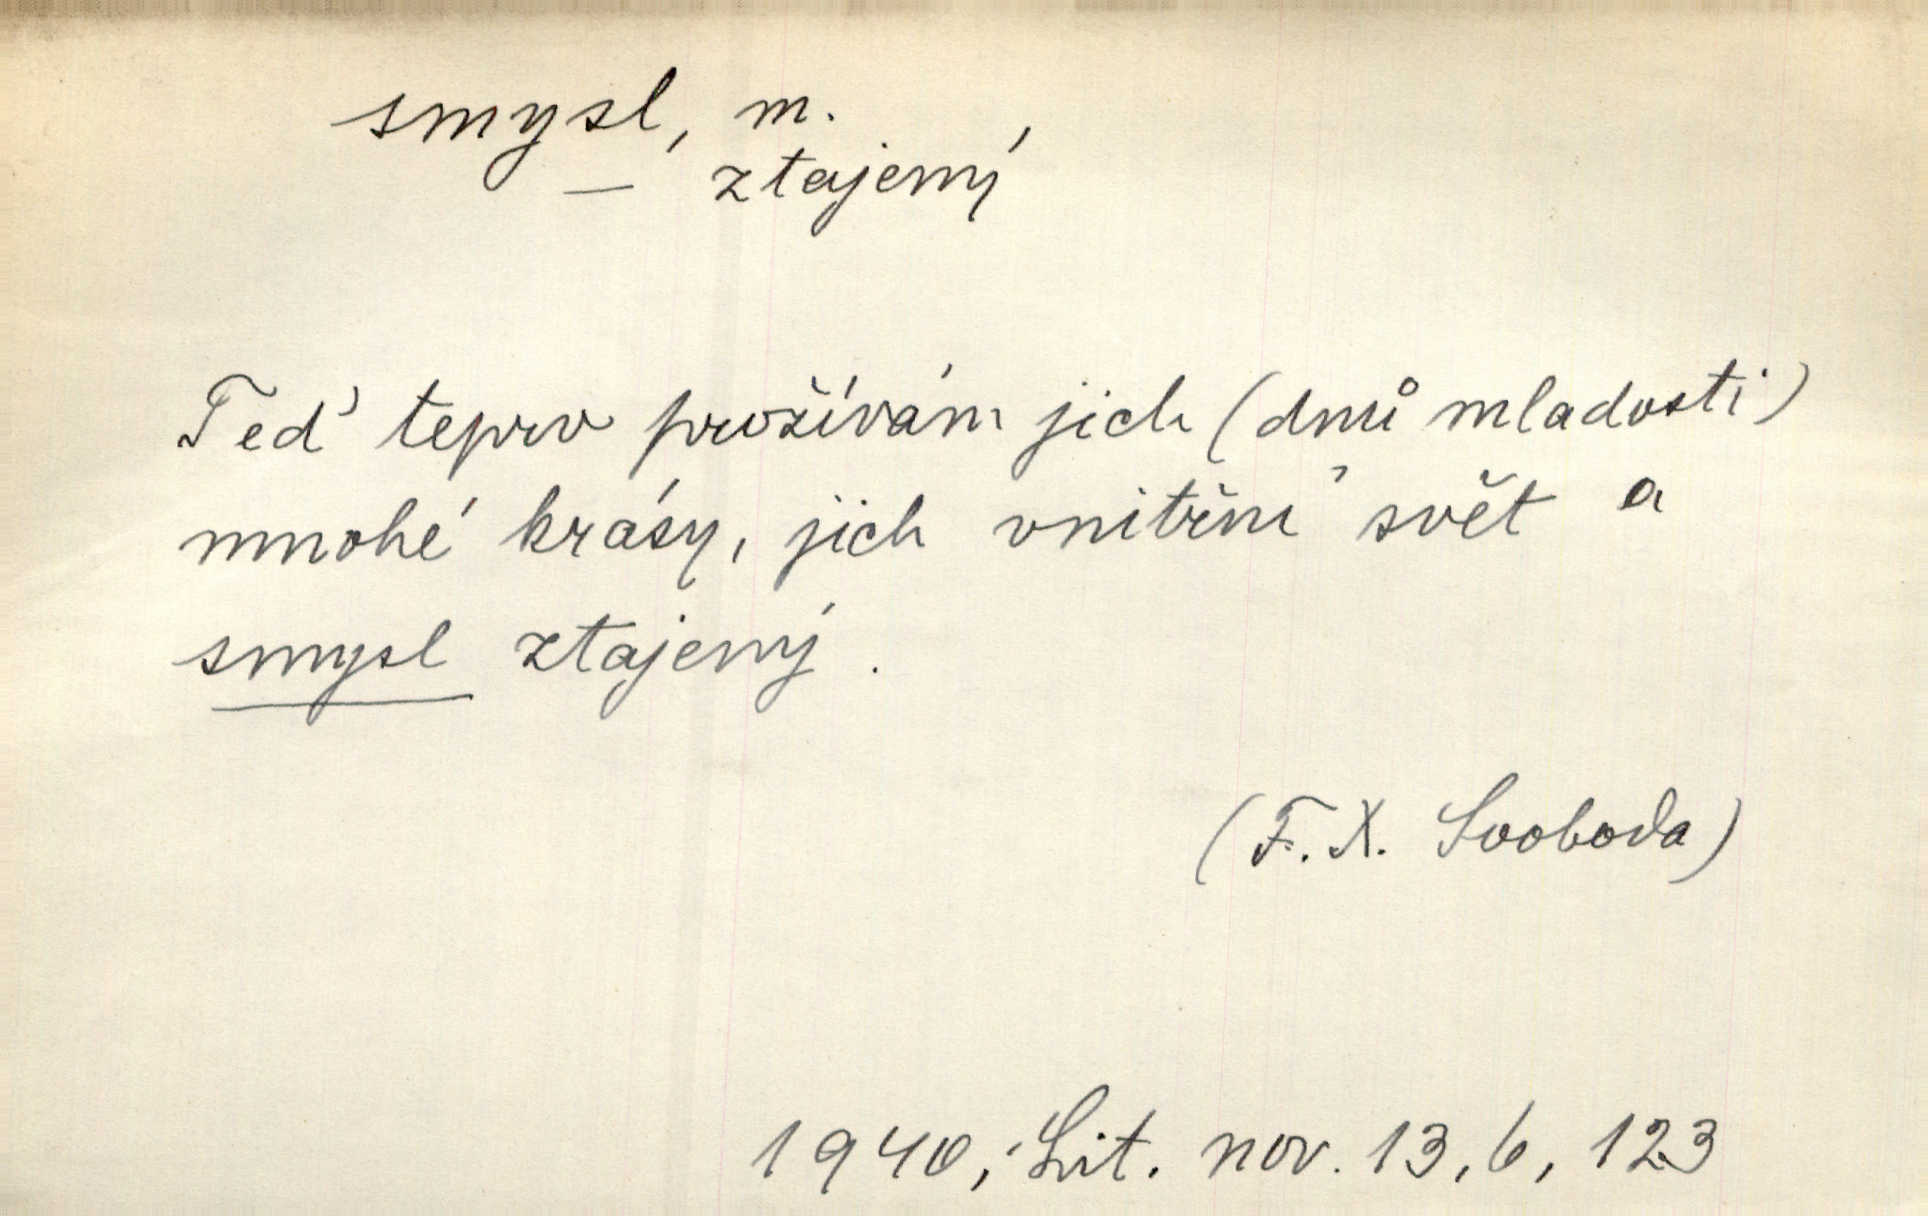 smysl, m.
— ztajený
Teď teprv prožívám jich (dnů mladosti)
mnohé krásy, jich vnitřní svět a
smysl ztajený.
(F. X. Svoboda)
1940, Lit. nov. 13, 6, 123